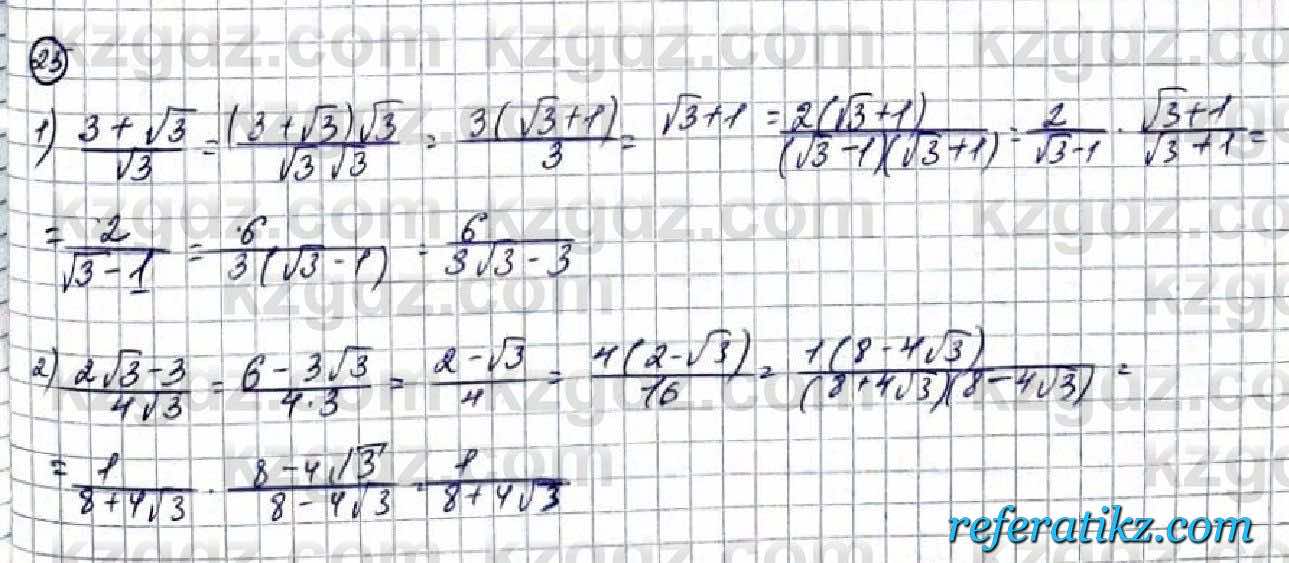 23
1) (3+√3)/√3 = ((3+√3)√3)/(√3 √3) = 3(√3+1)/3 = √3+1 = 2(√3+1)/((√3-1)(√3+1)) = 2/(√3-1) · (√3+1)/(√3+1) =
= 2/(√3-1) = 6/(3(√3-1)) = 6/(3√3-3)
2) (2√3-3)/(4√3) = (6-3√3)/(4·3) = (2-√3)/4 = 4(2-√3)/16 = 1(8-4√3)/((8+4√3)(8-4√3)) =
= 1/(8+4√3) · (8-4√3)/(8-4√3) = 1/(8+4√3)
referatikz.com